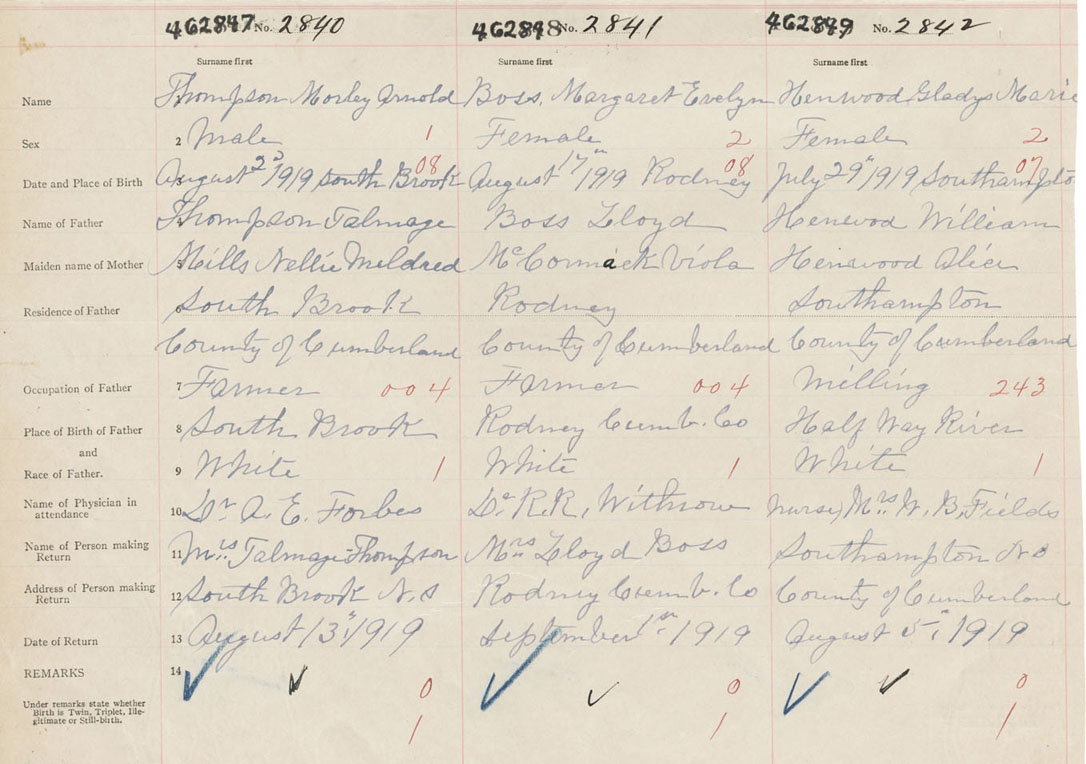 462847 No. 2840 462848 No. 2841 462849 No. 2842
Surname first Surname first Surname first
Name Thompson Morley Arnold Boss, Margaret Evelyn Henwood Gladys Marie
Sex 2 Male 1 Female 2 Female 2
08 08 07
Date and Place of Birth 3 August 2nd 1919 South Brook August 17th 1919 Rodney July 29th 1919 Southampton
Name of Father Thompson Talmage Boss Lloyd Henwood William
Maiden name of Mother 5 Mills Nellie Mildred McCormack Viola Henwood Alice
Residence of Father 6 South Brook Rodney Southampton
County of Cumberland County of Cumberland County of Cumberland
Occupation of Father 7 Farmer 004 Farmer 004 Milling 243
Place of Birth of Father 8 South Brook Rodney Cumb. Co Half Way River
and
Race of Father. 9 White 1 White 1 White 1
Name of Physician in
attendance 10 Dr A. E. Forbes Dr R. R, Withrow nurse) Mrs W. B, Fields
Name of Person making
Return 11 Mrs Talmage Thompson Mrs Lloyd Boss Southampton N S
Address of Person making
Return 12 South Brook N.S Rodney Cumb. Co County of Cumberland
Date of Return 13 August 13th 1919 September 1st 1919 August 5th 1919
REMARKS 14
0 0 0
Under remarks state whether
Birth is Twin, Triplet, Ille-
gitimate or Still-birth.
1 1 1